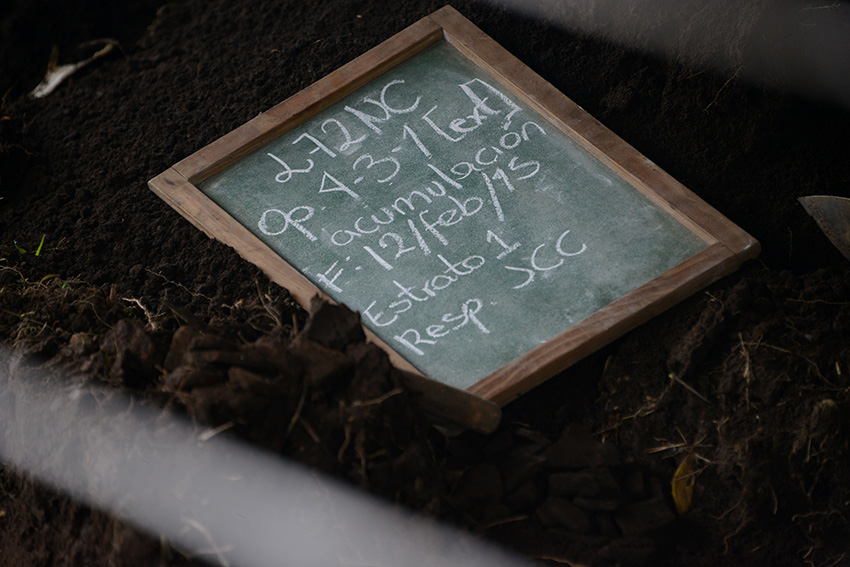 L72NC
Op 4-3-1 [ext]
acumulación
F: 12/feb/15
Estrato 1
Resp. JCC